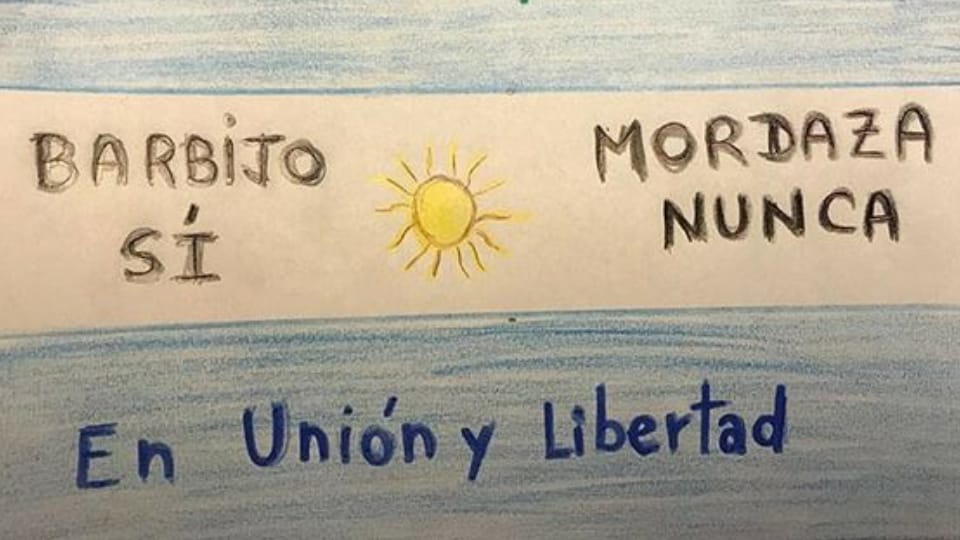 BARBIJO
SÍ
MORDAZA
NUNCA
En Unión y Libertad